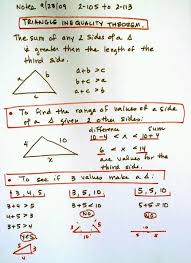 Notes 9/28/09 2-105 to 2-113
TRIANGLE INEQUALITY THEOREM.
The sum of any 2 sides of a Δ
is greater then the length of the
third side.
a b c
a+b > c
b+c > a
a+c > b
• To find the range of values of a side
of a Δ given 2 other sides:
difference sum
10-4 < x < 10+4
4 10 x
6 < x < 14
are values for the
third side.
• To see if 3 values make a Δ.
3, 4, 5, 3, 5, 10, 5, 5, 10
3+4 > 5 3+5 > 10 5+5 = 10
4+5 > 3 NO NO
3+5 > 4
YES
3 5 5 5
10 10
3 4 5